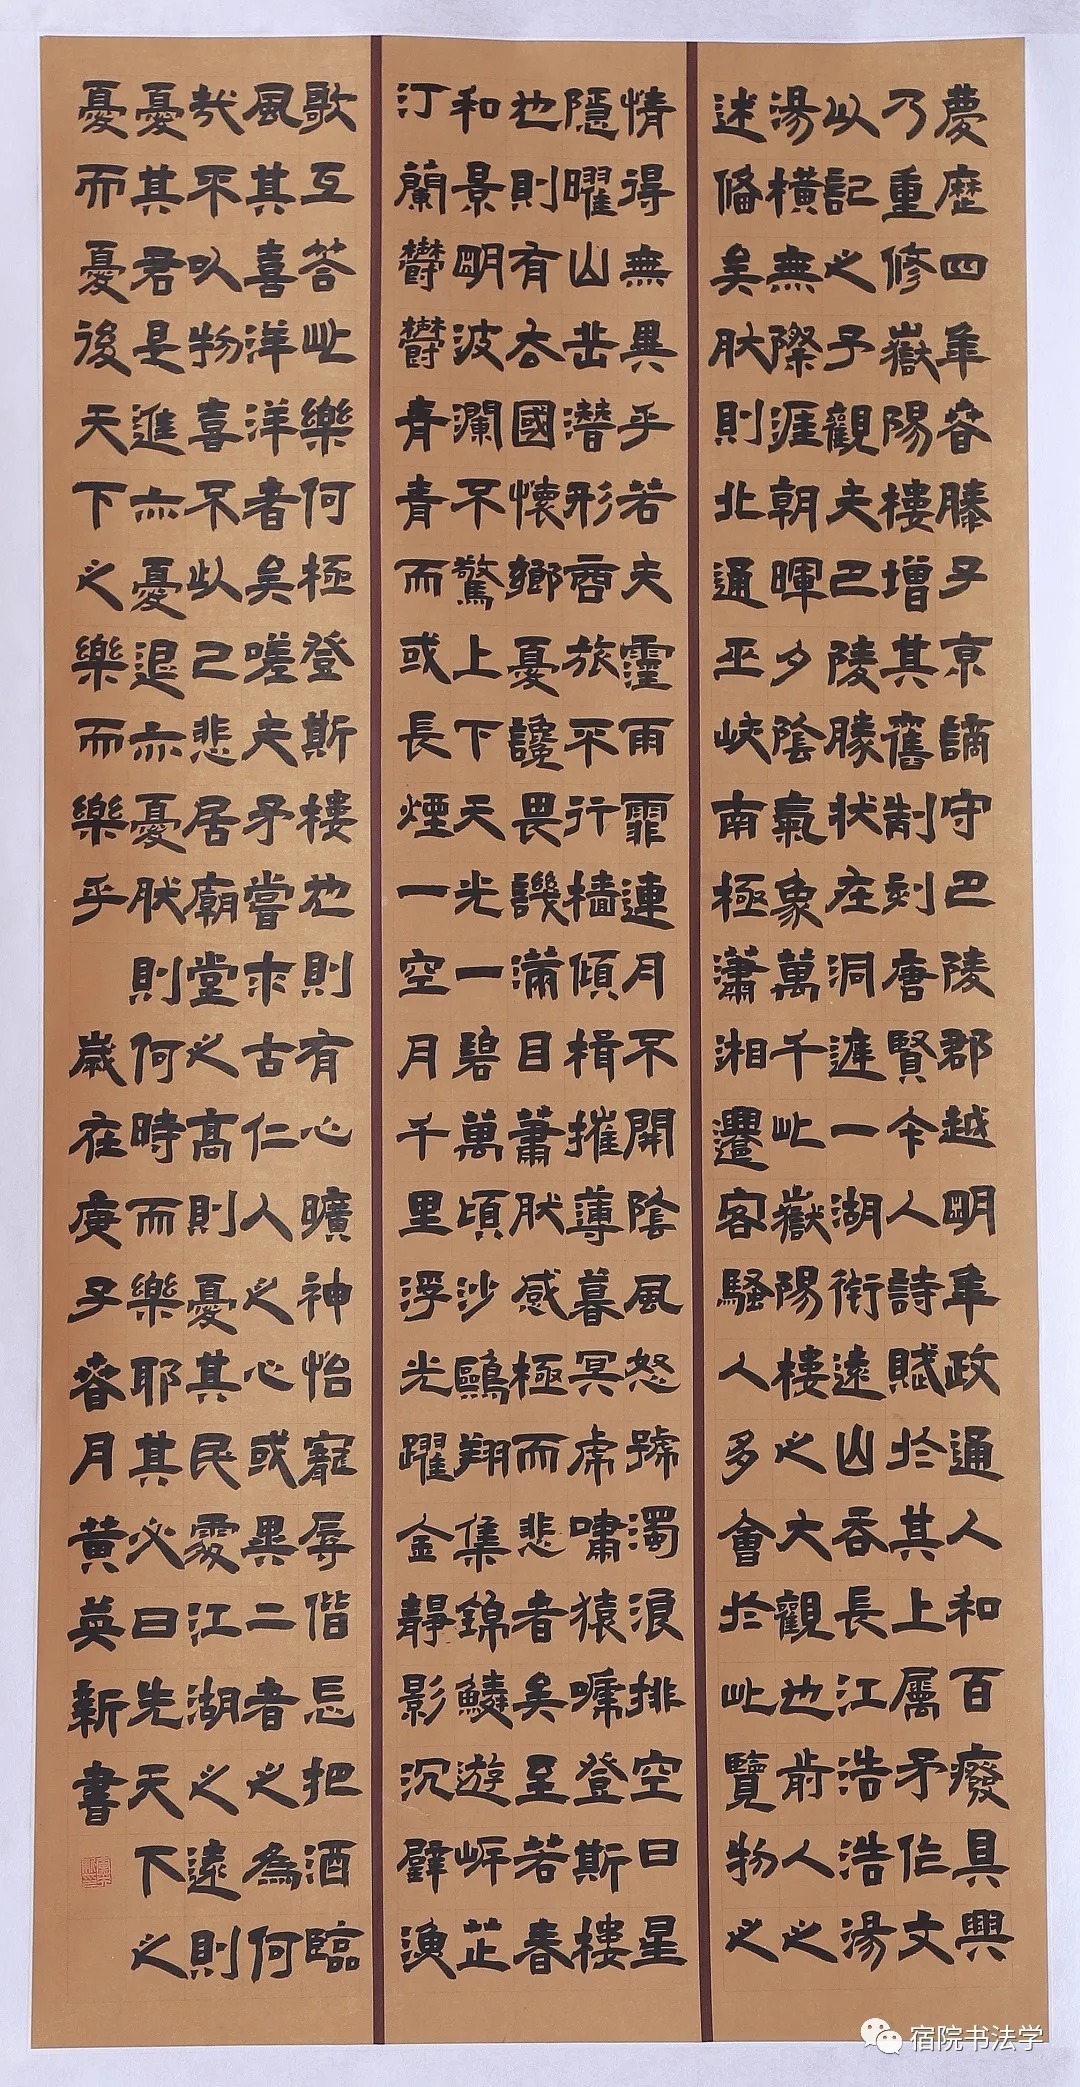 慶歷四年春滕子京謫守巴陵郡越明年政通人和百廢具興
乃重修嶽陽樓增其舊制刻唐賢今人詩賦於其上屬予作文
以記之予觀夫巴陵勝狀在洞庭一湖銜遠山吞長江浩浩湯
湯橫無際涯朝暉夕陰氣象萬千此嶽陽樓之大觀也前人之
述備矣然則北通巫峽南極瀟湘遷客騷人多會於此覽物之
情得無異乎若夫霪雨霏連月不開陰風怒號濁浪排空日星
隱曜山岳潛形商旅不行檣傾楫摧薄暮冥虎嘯猿啼登斯樓
也則有去國懷鄉憂讒畏譏滿目蕭然感極而悲者矣至若春
和景明波瀾不驚上下天光一碧萬頃沙鷗翔集錦鱗遊岸芷
汀蘭鬱鬱青青而或長煙一空月千里浮光躍金靜影沉璧漁
歌互答此樂何極登斯樓也則有心曠神怡寵辱偕忘把酒臨
風其喜洋洋者矣嗟夫予嘗求古仁人之心或異二者之為何
哉不以物喜不以己悲居廟堂之高則憂其民處江湖之遠則
憂其君是進亦憂退亦憂然則何時而樂耶其必曰先天下之
憂而憂後天下之樂而樂乎 歲在庚子春月黃英新書
宿院书法学